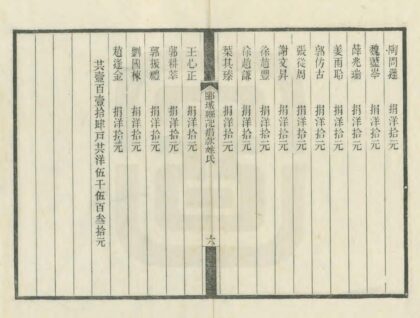 陶問遷 捐洋拾元
魏藍華 捐洋拾元
薛兆瑞 捐洋拾元
姜雨聆 捐洋拾元
郭仿古 捐洋拾元
張從周 捐洋拾元
謝文昇 捐洋拾元
徐趙豐 捐洋拾元
徐趙謙 捐洋拾元
葉其臻 捐洋拾元
捐款姓氏
六
王心正 捐洋拾元
郭耕莘 捐洋拾元
郭振禮 捐洋拾元
劉國棟 捐洋拾元
趙逢金 捐洋拾元
共壹百壹拾肆戸共洋伍千伍百叁拾元